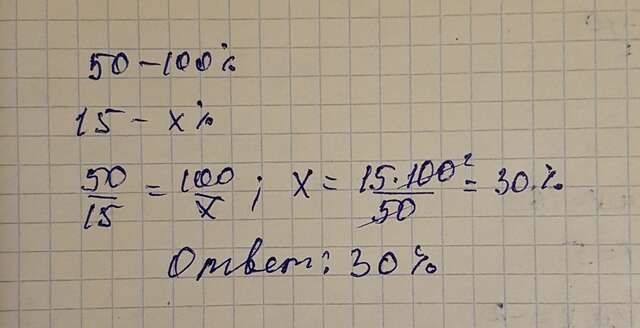 50 – 100%
15 – x%
50/15 = 100/x ; x = 15·100²/50 = 30.%
Ответ: 30%